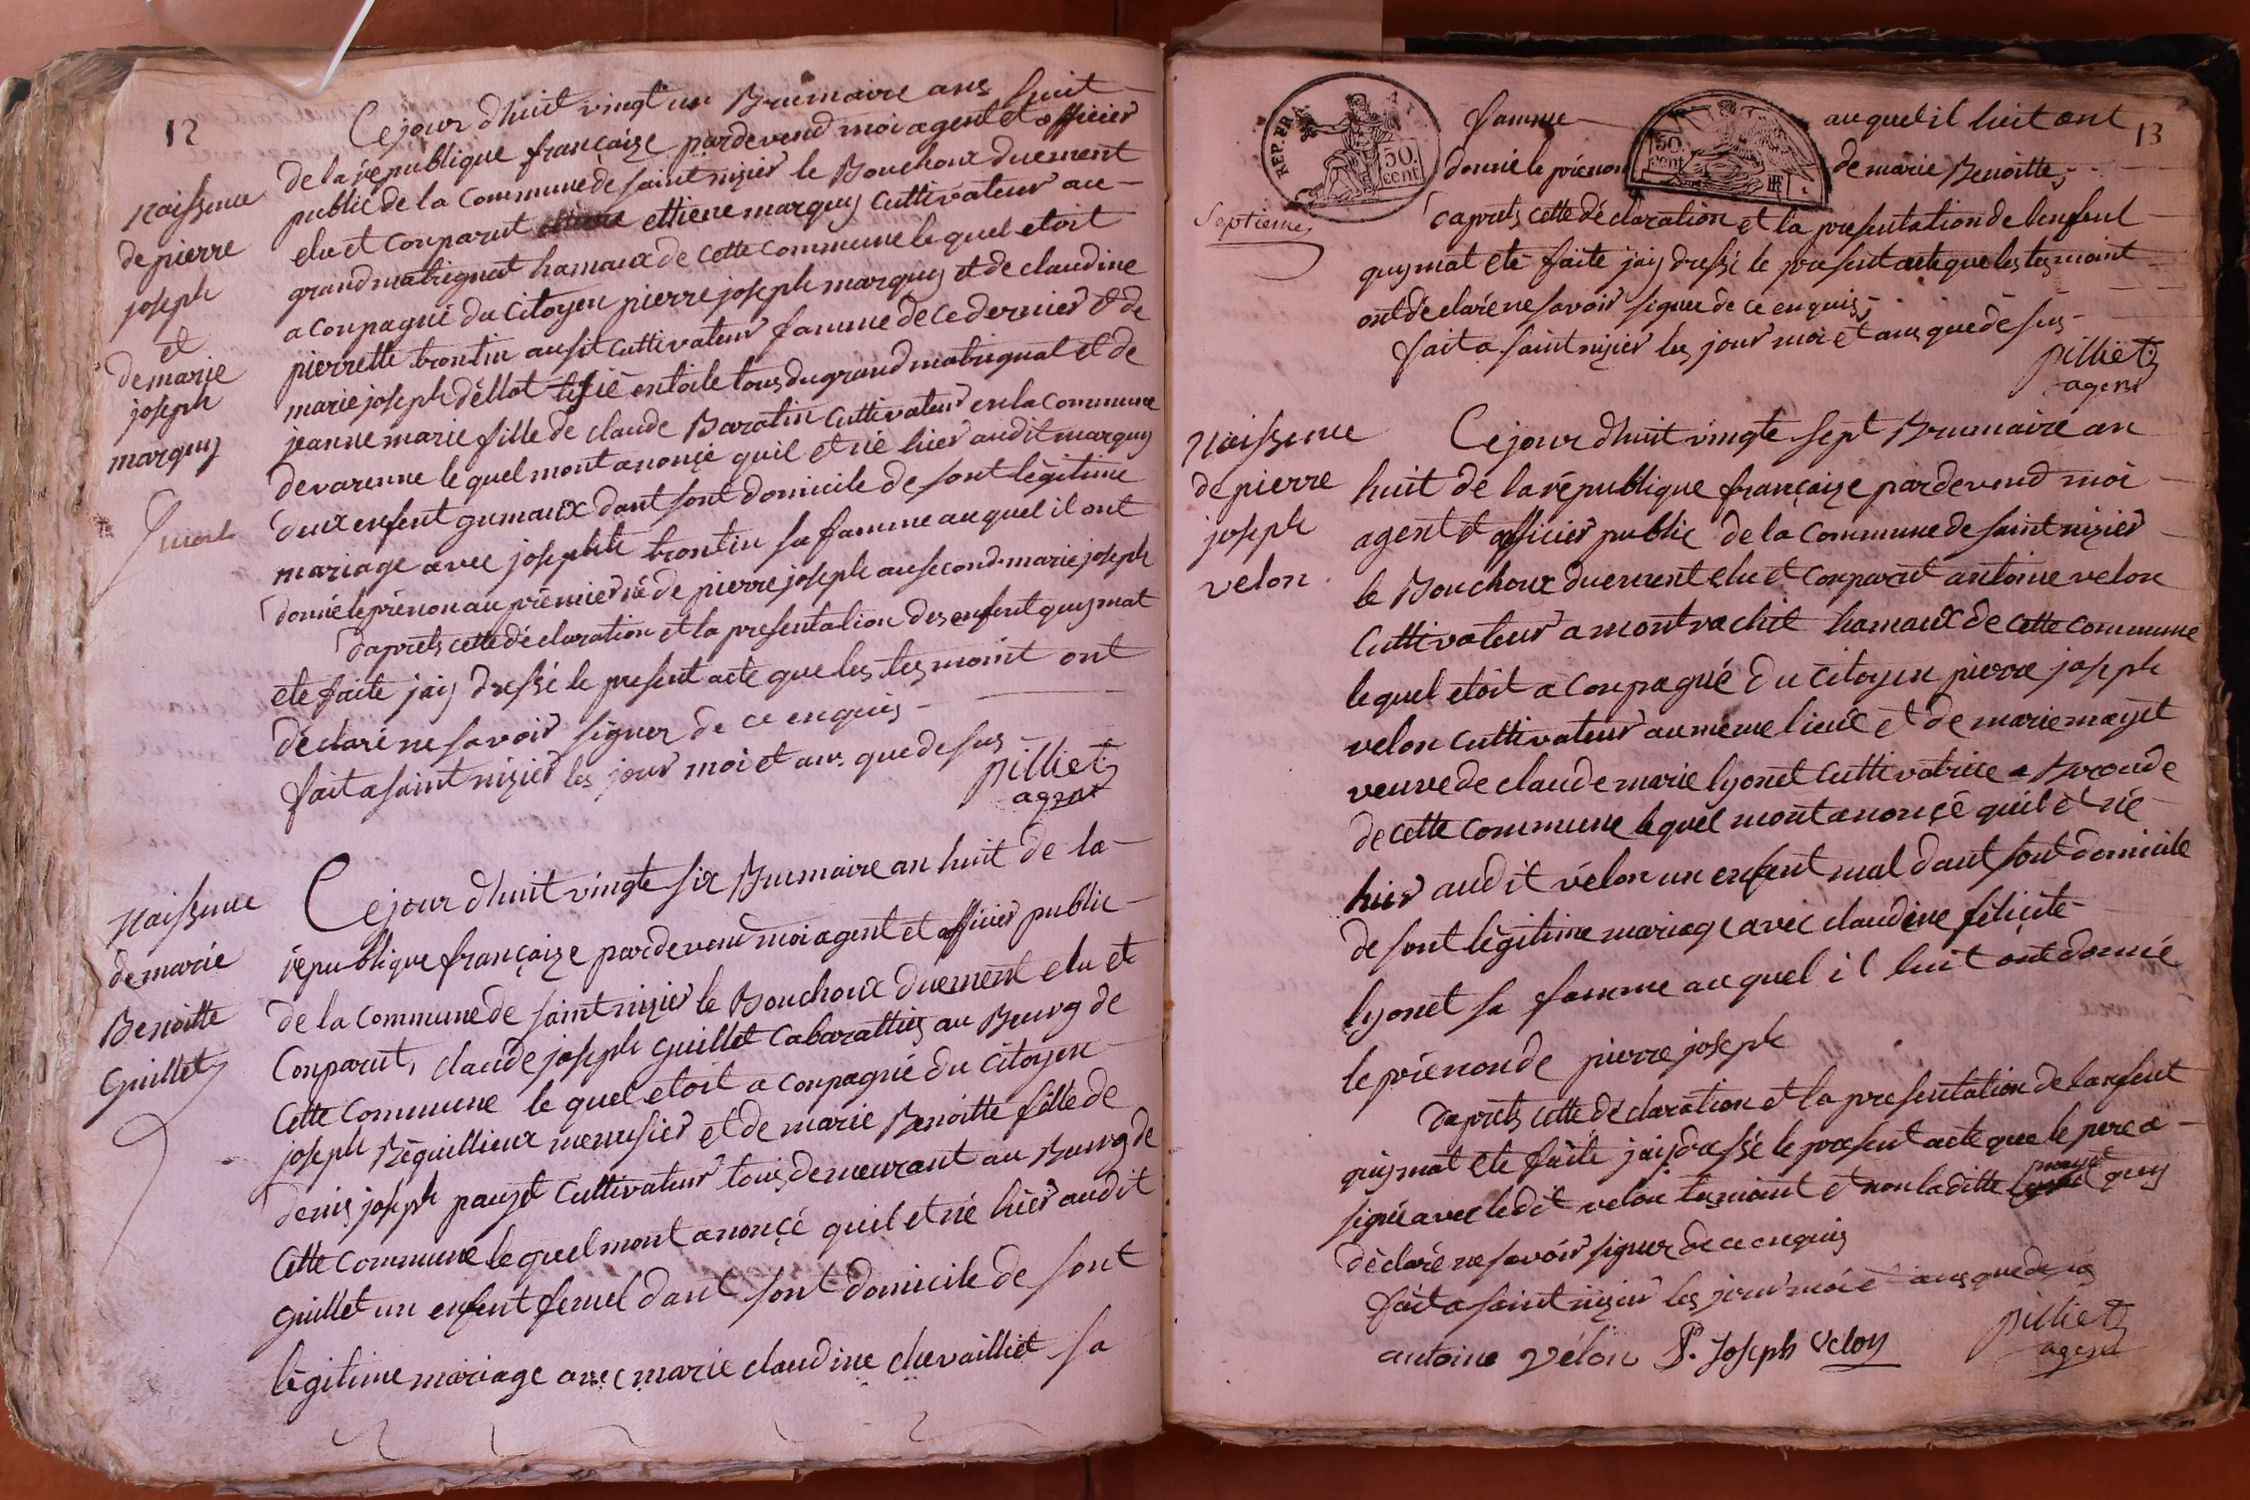 12
Cejour dhuit vingt un Brumaire ans huit
de la république françaize pardevend moi agent et officier
public de la Commune de saint nizier le Bouchoux duement
elu et Conparut ettiene marquis Cultivateur au
grand matrignat hamaux de cette commune lequel etoit
a conpagné du Citoyen pierre joseph marquis et de claudine
pierrette trontin ausit cultivateur famme de ce dernier et de
marie joseph dèllot entoile tous du grand matrignat et de
jeanne marie fille de claude Baratin cultivateur en la commune
de varenne le quel mont anonçé quil et né hier audit marquis
deux enfent gumaux dant sont domicile de sont lègitime
mariage avec josephte trontin sa famme au quel il ont
donné le prénon au prémier né de pierre joseph au second marie joseph
daprets cette déclaration et la presentation des enfent quis mat
ete faite jais dressé le present acte que les tes moint ont
déclaré ne savoir signer de ce enquis
fait a saint nizier les jour moi et ans que de sus
pilliet
agent
Naissence
de pierre
joseph
et
de marie
joseph
marquis
Cejour dhuit vingte six Brumaire an huit de la
république françaize pardevend moi agent et officier public
de la commune de saint nizier le Bouchoux duement elu et
Conparut, claude joseph guillet Cabarattier au Bourg de
Cette Commune le quel etoit a conpagné du Citoyen
joseph Rèquillieux menusier et de marie Benoitte fille de
denis joseph pauget cultivateur tous demeurant au Bourg de
Cette Commune le quel mont anonçé quil et né hier audit
guillet un enfent femel dant sont domicile de sont
lègitime mariage avec marie claudine chevailliet sa
Naissence
de marie
Benoitte
Guillet
REP. FRA.
50.
cent.
50.
cent.
13
famme auquel il luit ont
donné le prénon de marie Benoitte
Septieme
daprets cette déclaration et la presentation de lenfent
quis mat ete faite jais dressé le present acte que les tes moint
ont déclaré ne savoir signer de ce enquis
fait a saint nizier les jour moi et ans que de sus
pilliet
agent
Naissence
de pierre
joseph
velon
Cejour dhuit vingte sept Brumaire an
huit de la république françaize pardevend moi
agent et officier public de la Commune de saint nizier
le Bouchoux duement elu et Conparut antoine velon
Cultivateur a montrachit hamaux de cette commune
le quel etoit a conpagné du Citoyen pierre joseph
velon cultivateur au même lieux et de marie mayet
veuve de claude marie lyonet cultivatrice a Bronde
de cette commune le quel mont anonçé quil et né
hier audit vélon un enfent mal dant sont domicile
de sont lègitime mariage avec claudine félicité
lyonet sa famme au quel il luit ont donné
le prénon de pierre joseph
daprets cette déclaration et la presentation de lenfent
quis mat ete faite jais dressé le present acte que le pere a
signé avec le dit velon temoint et non la ditte mayet quis
dèclaré ne savoir signer de ce enquis
fait a saint nizier les jour moi et ans que de sus
antoine vélon P. Joseph Velon
pilliet
agent